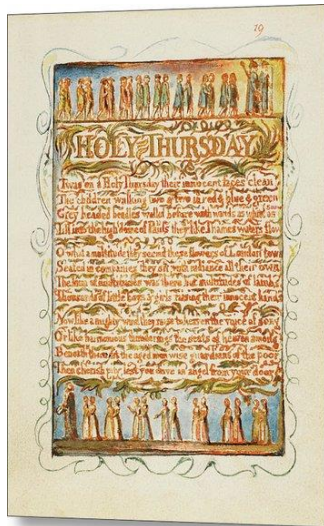 19
HOLY THURSDAY
Twas on a Holy Thursday their innocent faces clean
The children walking two & two in red & blue & green
Grey headed beadles walkd before with wands as white as snow
Till into the high dome of Pauls they like Thames waters flow
O what a multitude they seemd these flowers of London town
Seated in companies they sit with radiance all their own
The hum of multitudes was there but multitudes of lambs
Thousands of little boys & girls raising their innocent hands
Now like a mighty wind they raise to heaven the voice of song
Or like harmonious thunderings the seats of heaven among
Beneath them sit the aged men wise guardians of the poor
Then cherish pity, lest you drive an angel from your door